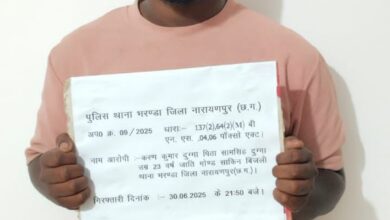 पुलिस थाना भरण्डा जिला नारायणपुर (छ.ग.)
अप0 क्र. 09/2025 धाराः- 137(2),64(2)(M) बी
एन. एस. ,04,06 पॉक्सो एक्ट।
नाम आरोपी :- करण कुमार दुग्गा पिता सामसिंह दुग्गा
उम्र 23 वर्ष जाति गोण्ड साकिन बिंजली
थाना भरण्डा जिला नारायणपुर(छ.ग.)
गिरफ्तारी दिनांक :- 30.06.2025 के 21:50 बजे।